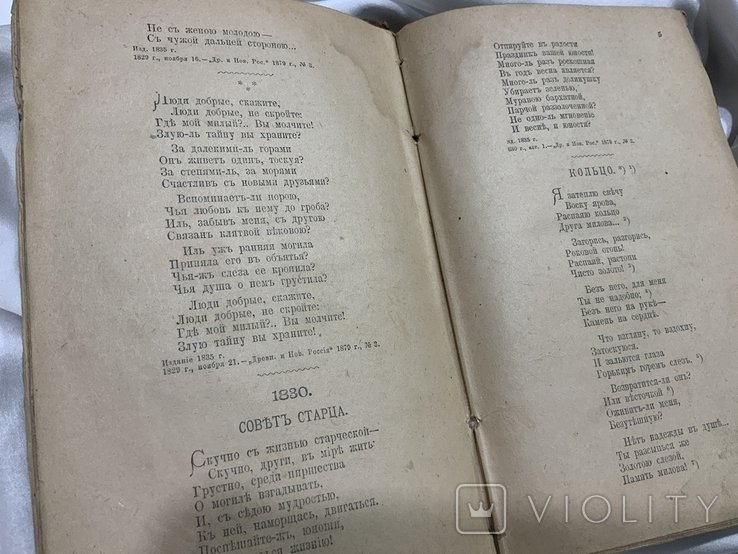 Не съ женою молодою—
Съ чужой дальней стороною...
Изд. 1835 г.
1829 г., ноября 16.—„Др. и Нов. Рос.“ 1879 г., № 2.
* * *
Люди добрые, скажите,
Люди добрые, не скройте:
Гдѣ мой милый?.. Вы молчите!
Злую-ль тайну вы храните?
За далекими-ль горами
Онъ живетъ одинъ, тоскуя?
За степями-ль, за морями
Счастливъ съ новыми друзьями?
Вспоминаетъ-ли порою,
Чья любовь къ нему до гроба?
Иль, забывъ меня, съ другою
Связанъ клятвой вѣковою?
Иль ужъ ранняя могила
Приняла его въ объятья?
Чья-жъ слеза ее кропила?
Чья душа о немъ грустила?
Люди добрые, скажите,
Люди добрые, не скройте:
Гдѣ мой милый?.. Вы молчите!
Злую тайну вы храните!
Изданіе 1835 г.
1829 г., ноября 21.—„Древн. и Нов. Россія“ 1879 г., № 2.
1830.
СОВѢТЪ СТАРЦА.
Скучно съ жизнью старческой—
Скучно, други, въ мірѣ жить
Грустно, среди пиршества
О могилѣ взгадывать,
И, съ сѣдою мудростью,
Къ ней, наморщась, двигаться.
Поспѣшайте-жъ, юноши,
жизнью!
5
Отпируйте въ радости
Праздникъ вашей юности!
Много-ль разъ роскошная
Въ годъ весна является?
Много-ль разъ долинушку
Убираетъ зеленью,
Муравою бархатной,
Парчой раззолоченной?
Не одно-ль мгновеніе
И веснѣ, и юности?
зд. 1835 г.
1.—„Др. и Нов. Рос.“ 1879 г., № 2.
КОЛЬЦО.
Я затеплю свѣчу
Воску ярова,
Распаяю кольцо
Друга милова...
Загорись, разгорись,
Роковой огонь!
Распаяй, растопи
Чисто золото!
Безъ него, для меня
Ты не надобно;
Безъ него на рукѣ—
Камень на сердцѣ.
Что взгляну, то вздохну,
Затоскуюся.
И зальются глаза
Горькимъ горемъ слезъ.
Возвратится-ли онъ?
Или вѣсточкой
Оживитъ-ли меня,
Безутѣшную?
Нѣтъ надежды въ душѣ...
Ты разсыпься же
Золотою слезой,
Память милова!
VIOLITY